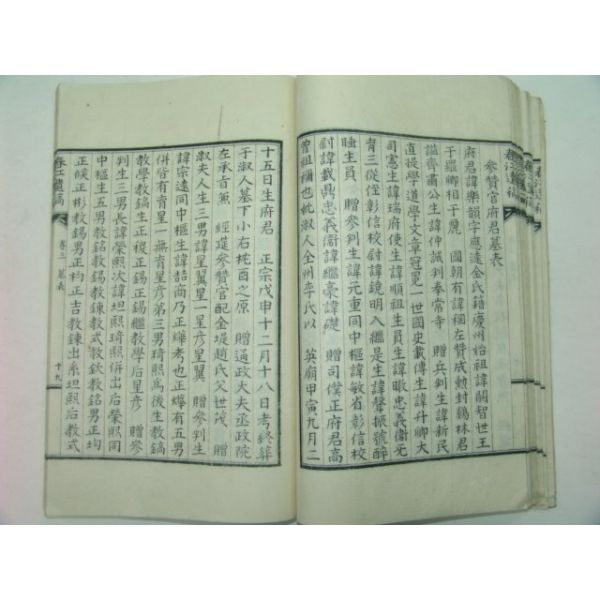 參贊官府君墓表
府君諱樂韻字應達金氏籍慶州始祖諱閼智世王
于羅鄕相于麗 國朝有諱稛左贊成勳封鷄林君
謚齊肅公生諱仲誠判奉常寺 贈兵判生諱新民
直提學道學文章冠冕一世國史載傳生諱升卿大
司憲生諱瑞府使生諱順祖生員生諱 忠義衛无
育三從侄彰信校尉諱鏡明入繼是生諱聲振號醉
睡生員 贈參判生諱元重同中樞諱敏省彰信校
尉諱載獻忠義衛諱繼豪諱礎 贈司僕正府君高
曾祖禰也妣淑人全州李氏以 英廟甲寅九月二
十五日生府君 正宗戊申十二月十八日考終葬
于淑人墓下小右 酉之原 贈通政大夫丞政院
左承旨兼 經筵參贊官配金堤趙氏父世茂 贈
淑夫人生三男諱星翼星一星彦星翼 贈參判生
諱宗遠同中樞生諱喆商乃正燁考也正燁有五男
併皆有育星一無育星彦第三男琦熙爲後生敎鎬
敎學敎鎬生正稷正錫正錫繼敎學后星彦 贈參
判生三男長諱榮熙次諱坦熙琦熙併出后榮熙同
中樞生五男敎銘敎錫敎鍊敎式敎欽敎銘男正均
正 正彬敎錫男正杓正吉敎鍊出系坦熙后敎式
春江遺稿
卷三 墓表
十九